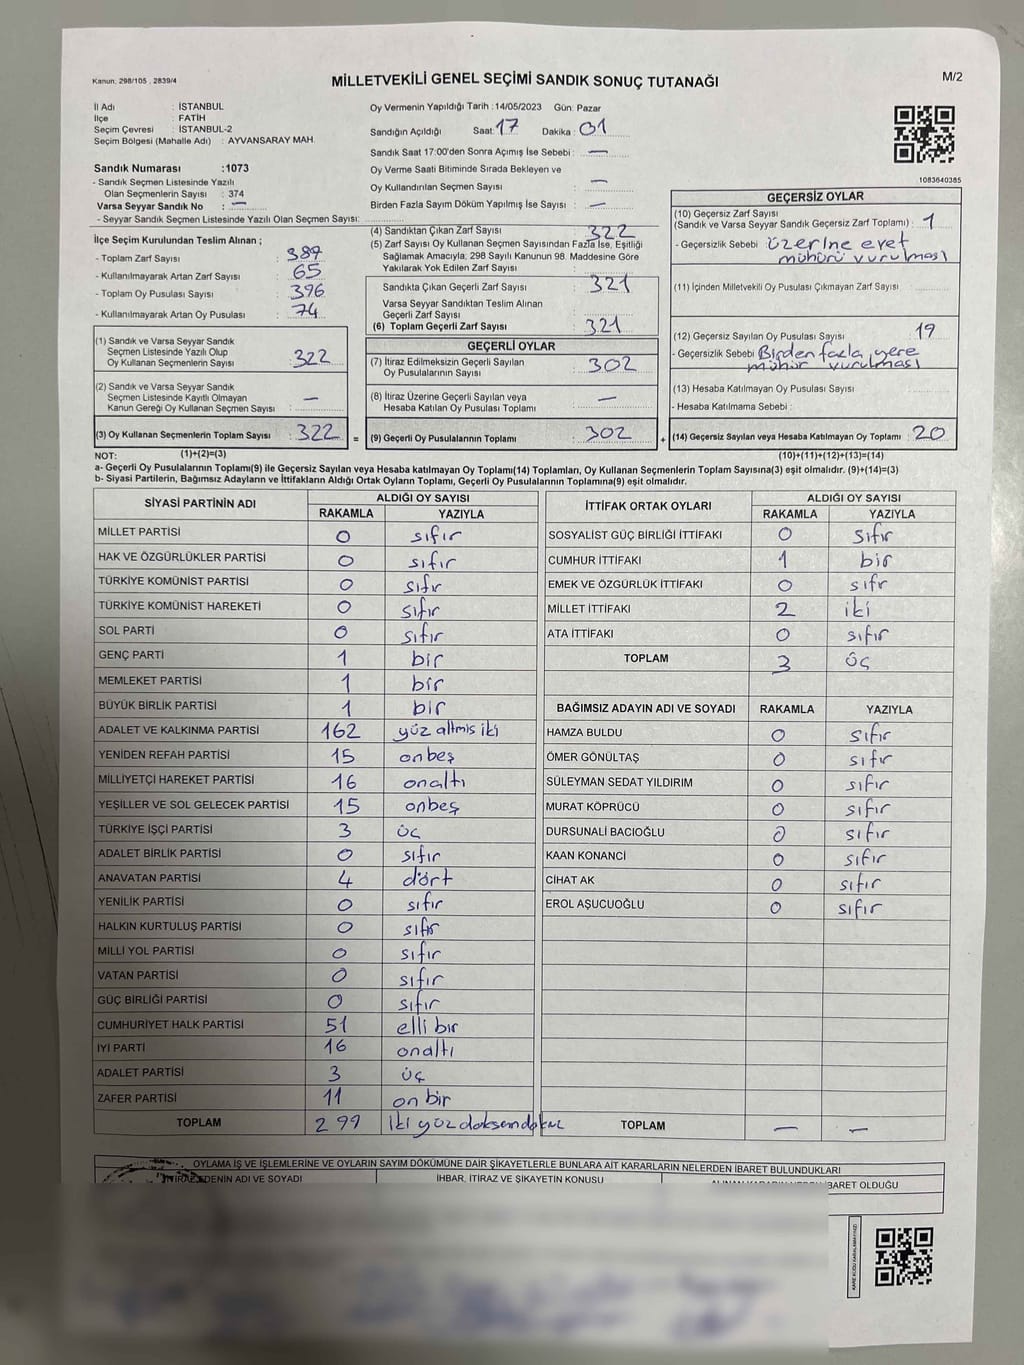 Kanun: 298/105 , 2839/4
MİLLETVEKİLİ GENEL SEÇİMİ SANDIK SONUÇ TUTANAĞI
M/2
İl Adı : İSTANBUL
İlçe : FATİH
Seçim Çevresi : İSTANBUL-2
Seçim Bölgesi (Mahalle Adı) : AYVANSARAY MAH.
Sandık Numarası :1073
- Sandık Seçmen Listesinde Yazılı
Olan Seçmenlerin Sayısı : 374
Varsa Seyyar Sandık No : —
- Seyyar Sandık Seçmen Listesinde Yazılı Olan Seçmen Sayısı:
Oy Vermenin Yapıldığı Tarih :14/05/2023 Gün: Pazar
Sandığın Açıldığı Saat: 17 Dakika : 01
Sandık Saat 17:00'den Sonra Açımış İse Sebebi : —
Oy Verme Saati Bitiminde Sırada Bekleyen ve
Oy Kullandırılan Seçmen Sayısı —
Birden Fazla Sayım Döküm Yapılmış İse Sayısı : —
1083640385
İlçe Seçim Kurulundan Teslim Alınan ;
- Toplam Zarf Sayısı : 387
- Kullanılmayarak Artan Zarf Sayısı : 65
- Toplam Oy Pusulası Sayısı : 396
- Kullanılmayarak Artan Oy Pusulası : 74
(1) Sandık ve Varsa Seyyar Sandık
Seçmen Listesinde Yazılı Olup
Oy Kullanan Seçmenlerin Sayısı : 322
(2) Sandık ve Varsa Seyyar Sandık
Seçmen Listesinde Kayıtlı Olmayan
Kanun Gereği Oy Kullanan Seçmen Sayısı : —
(3) Oy Kullanan Seçmenlerin Toplam Sayısı : 322
(4) Sandıktan Çıkan Zarf Sayısı : 322
(5) Zarf Sayısı Oy Kullanan Seçmen Sayısından Fazla İse, Eşitliği
Sağlamak Amacıyla, 298 Sayılı Kanunun 98. Maddesine Göre
Yakılarak Yok Edilen Zarf Sayısı :
Sandıkta Çıkan Geçerli Zarf Sayısı : 321
Varsa Seyyar Sandıktan Teslim Alınan
Geçerli Zarf Sayısı :
(6) Toplam Geçerli Zarf Sayısı : 321
GEÇERLİ OYLAR
(7) İtiraz Edilmeksizin Geçerli Sayılan
Oy Pusulalarının Sayısı : 302
(8) İtiraz Üzerine Geçerli Sayılan veya
Hesaba Katılan Oy Pusulası Toplamı : —
= (9) Geçerli Oy Pusulalarının Toplamı : 302
GEÇERSİZ OYLAR
(10) Geçersiz Zarf Sayısı
(Sandık ve Varsa Seyyar Sandık Geçersiz Zarf Toplamı) : 1
- Geçersizlik Sebebi : üzerine evet
mühürü vurulması
(11) İçinden Milletvekili Oy Pusulası Çıkmayan Zarf Sayısı :
(12) Geçersiz Sayılan Oy Pusulası Sayısı : 19
- Geçersizlik Sebebi : Birden fazla yere
mühür vurulması
(13) Hesaba Katılmayan Oy Pusulası Sayısı :
- Hesaba Katılmama Sebebi :
+ (14) Geçersiz Sayılan veya Hesaba Katılmayan Oy Toplamı : 20
NOT: (1)+(2)=(3) (10)+(11)+(12)+(13)=(14)
a- Geçerli Oy Pusulalarının Toplamı(9) ile Geçersiz Sayılan veya Hesaba katılmayan Oy Toplamı(14) Toplamları, Oy Kullanan Seçmenlerin Toplam Sayısına(3) eşit olmalıdır. (9)+(14)=(3)
b- Siyasi Partilerin, Bağımsız Adayların ve İttifakların Aldığı Ortak Oyların Toplamı, Geçerli Oy Pusulalarının Toplamına(9) eşit olmalıdır.
SİYASİ PARTİNİN ADI ALDIĞI OY SAYISI
RAKAMLA YAZIYLA
MİLLET PARTİSİ 0 sıfır
HAK VE ÖZGÜRLÜKLER PARTİSİ 0 sıfır
TÜRKİYE KOMÜNİST PARTİSİ 0 sıfır
TÜRKİYE KOMÜNİST HAREKETİ 0 sıfır
SOL PARTİ 0 sıfır
GENÇ PARTİ 1 bir
MEMLEKET PARTİSİ 1 bir
BÜYÜK BİRLİK PARTİSİ 1 bir
ADALET VE KALKINMA PARTİSİ 162 yüz altmis iki
YENİDEN REFAH PARTİSİ 15 onbeş
MİLLİYETÇİ HAREKET PARTİSİ 16 onaltı
YEŞİLLER VE SOL GELECEK PARTİSİ 15 onbeş
TÜRKİYE İŞÇİ PARTİSİ 3 üç
ADALET BİRLİK PARTİSİ 0 sıfır
ANAVATAN PARTİSİ 4 dört
YENİLİK PARTİSİ 0 sıfır
HALKIN KURTULUŞ PARTİSİ 0 sıfır
MİLLİ YOL PARTİSİ 0 sıfır
VATAN PARTİSİ 0 sıfır
GÜÇ BİRLİĞİ PARTİSİ 0 sıfır
CUMHURİYET HALK PARTİSİ 51 elli bir
İYİ PARTİ 16 onaltı
ADALET PARTİSİ 3 üç
ZAFER PARTİSİ 11 on bir
TOPLAM 299 iki yüz doksandokuz
İTTİFAK ORTAK OYLARI ALDIĞI OY SAYISI
RAKAMLA YAZIYLA
SOSYALİST GÜÇ BİRLİĞİ İTTİFAKI 0 sıfır
CUMHUR İTTİFAKI 1 bir
EMEK VE ÖZGÜRLÜK İTTİFAKI 0 sıfr
MİLLET İTTİFAKI 2 iki
ATA İTTİFAKI 0 sıfır
TOPLAM 3 üç
BAĞIMSIZ ADAYIN ADI VE SOYADI RAKAMLA YAZIYLA
HAMZA BULDU 0 sıfır
ÖMER GÖNÜLTAŞ 0 sıfır
SÜLEYMAN SEDAT YILDIRIM 0 sıfır
MURAT KÖPRÜCÜ 0 sıfır
DURSUNALİ BACIOĞLU 0 sıfır
KAAN KONANCİ 0 sıfır
CİHAT AK 0 sıfır
EROL AŞUCUOĞLU 0 sıfır
TOPLAM — —
OYLAMA İŞ VE İŞLEMLERİNE VE OYLARIN SAYIM DÖKÜMÜNE DAİR ŞİKAYETLERLE BUNLARA AİT KARARLARIN NELERDEN İBARET BULUNDUKLARI
ADI VE SOYADI İHBAR, İTİRAZ VE ŞİKAYETİN KONUSU İBARET OLDUĞU